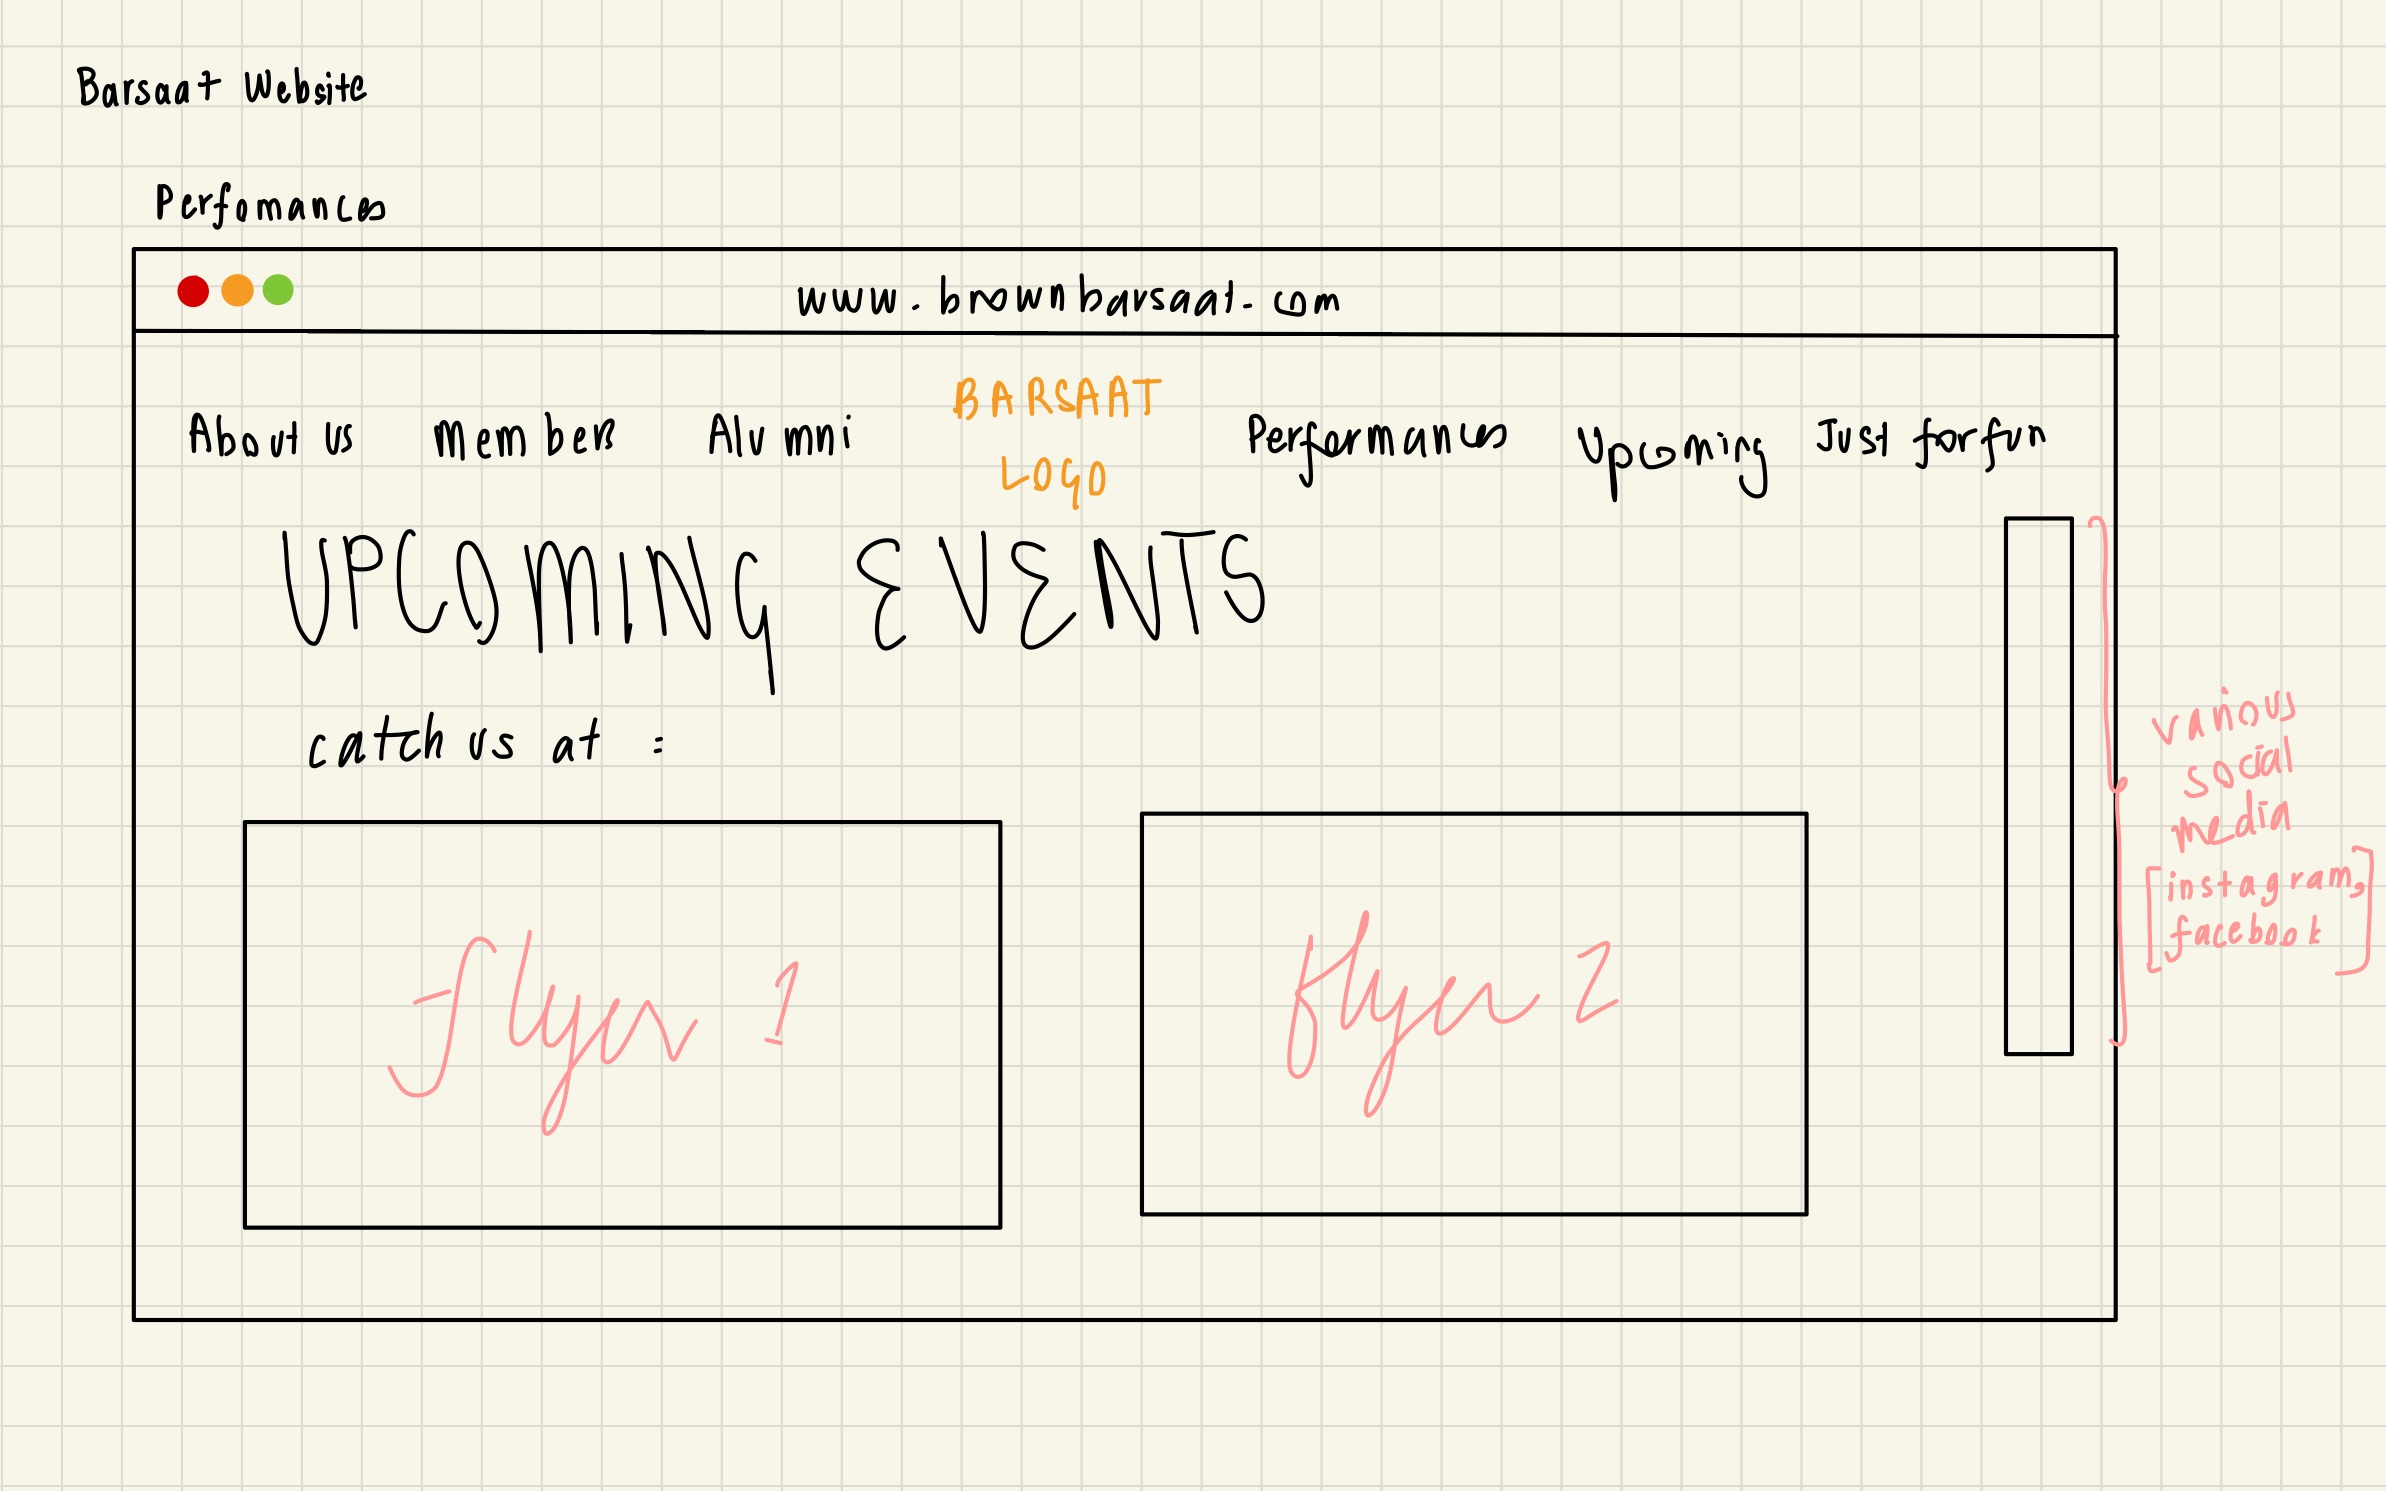 Barsaat Website
Perfomances
www.brownbarsaat.com
About us Members Alumni BARSAAT LOGO Performances Upcoming Just for fun
UPCOMING EVENTS
catch us at :
flyer 1
flyer 2
various
social
media
[instagram,
facebook]